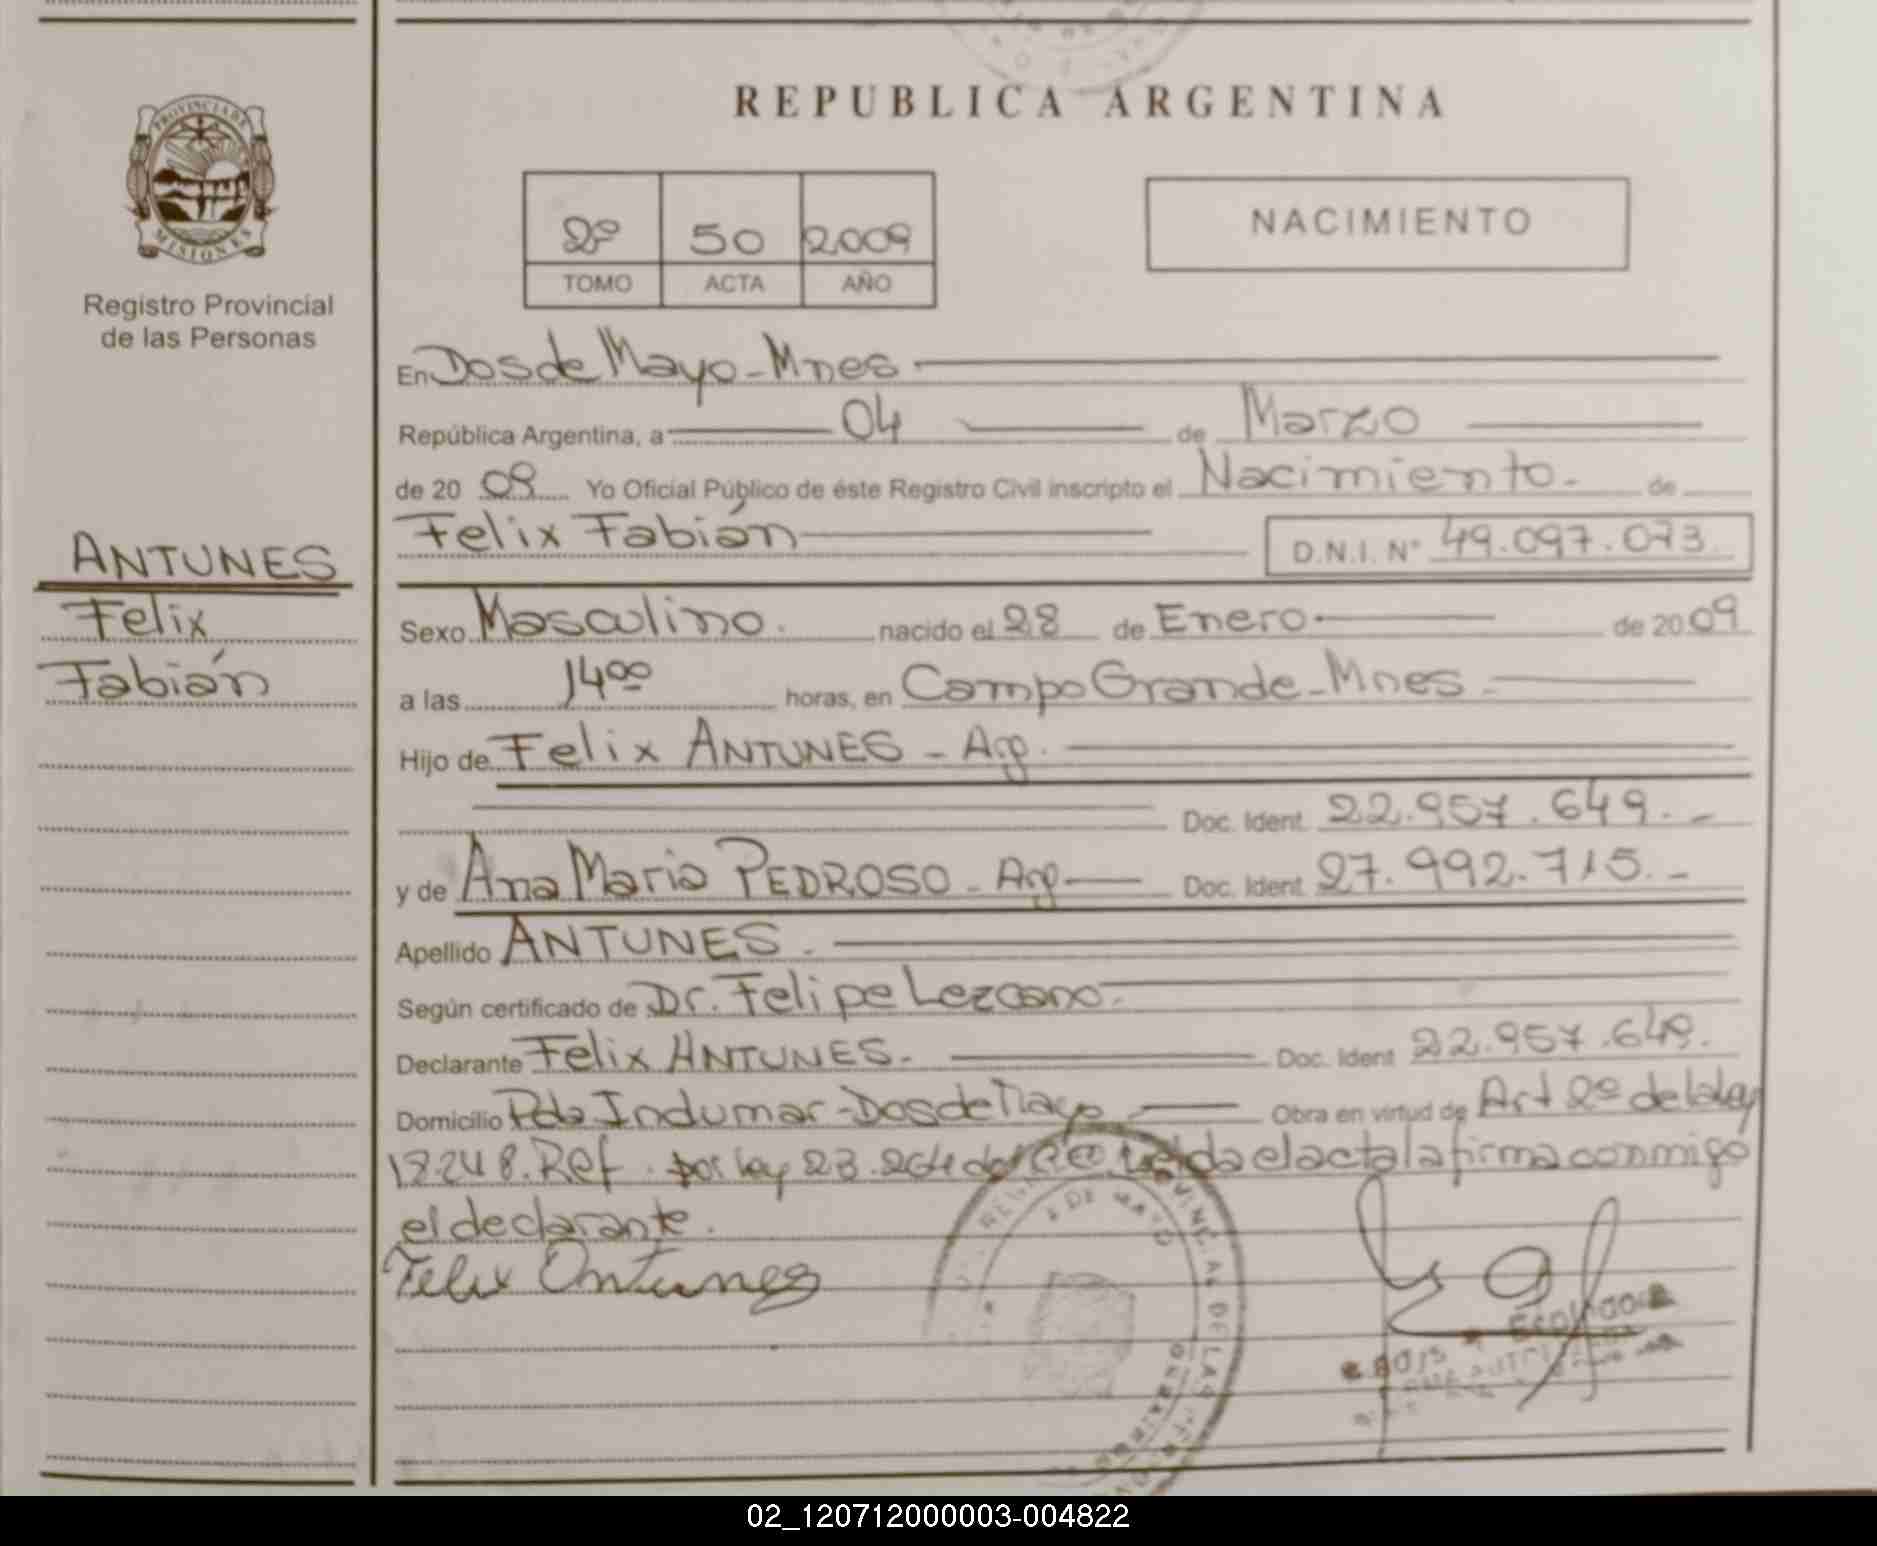 REPUBLICA ARGENTINA
PROVINCIA DE
MISIONES
Registro Provincial
de las Personas
2º 50 2009
TOMO ACTA AÑO
NACIMIENTO
En Dos de Mayo - Mnes
República Argentina, a 04 de Marzo
de 20 09 Yo Oficial Público de éste Registro Civil inscripto el Nacimiento. de
Felix Fabián D.N.I. Nº 49.097.073
ANTUNES
Felix
Fabián
Sexo Masculino. nacido el 28 de Enero de 20 09
a las 14 00 horas, en Campo Grande - Mnes.
Hijo de Felix ANTUNES - Arg.
Doc. Ident. 22.957.649.-
y de Ana Maria PEDROSO - Arg Doc. Ident. 27.992.715.-
Apellido ANTUNES.
Según certificado de Dr. Felipe Lezcano.
Declarante Felix ANTUNES. Doc. Ident 22.957.649.
Domicilio Pda Indumar - Dos de Mayo Obra en virtud de Art 2º de la ley
18.248. Ref. por ley 23.264 da el acta la firma conmigo
el declarante.
Felix Antunes
02_120712000003-004822